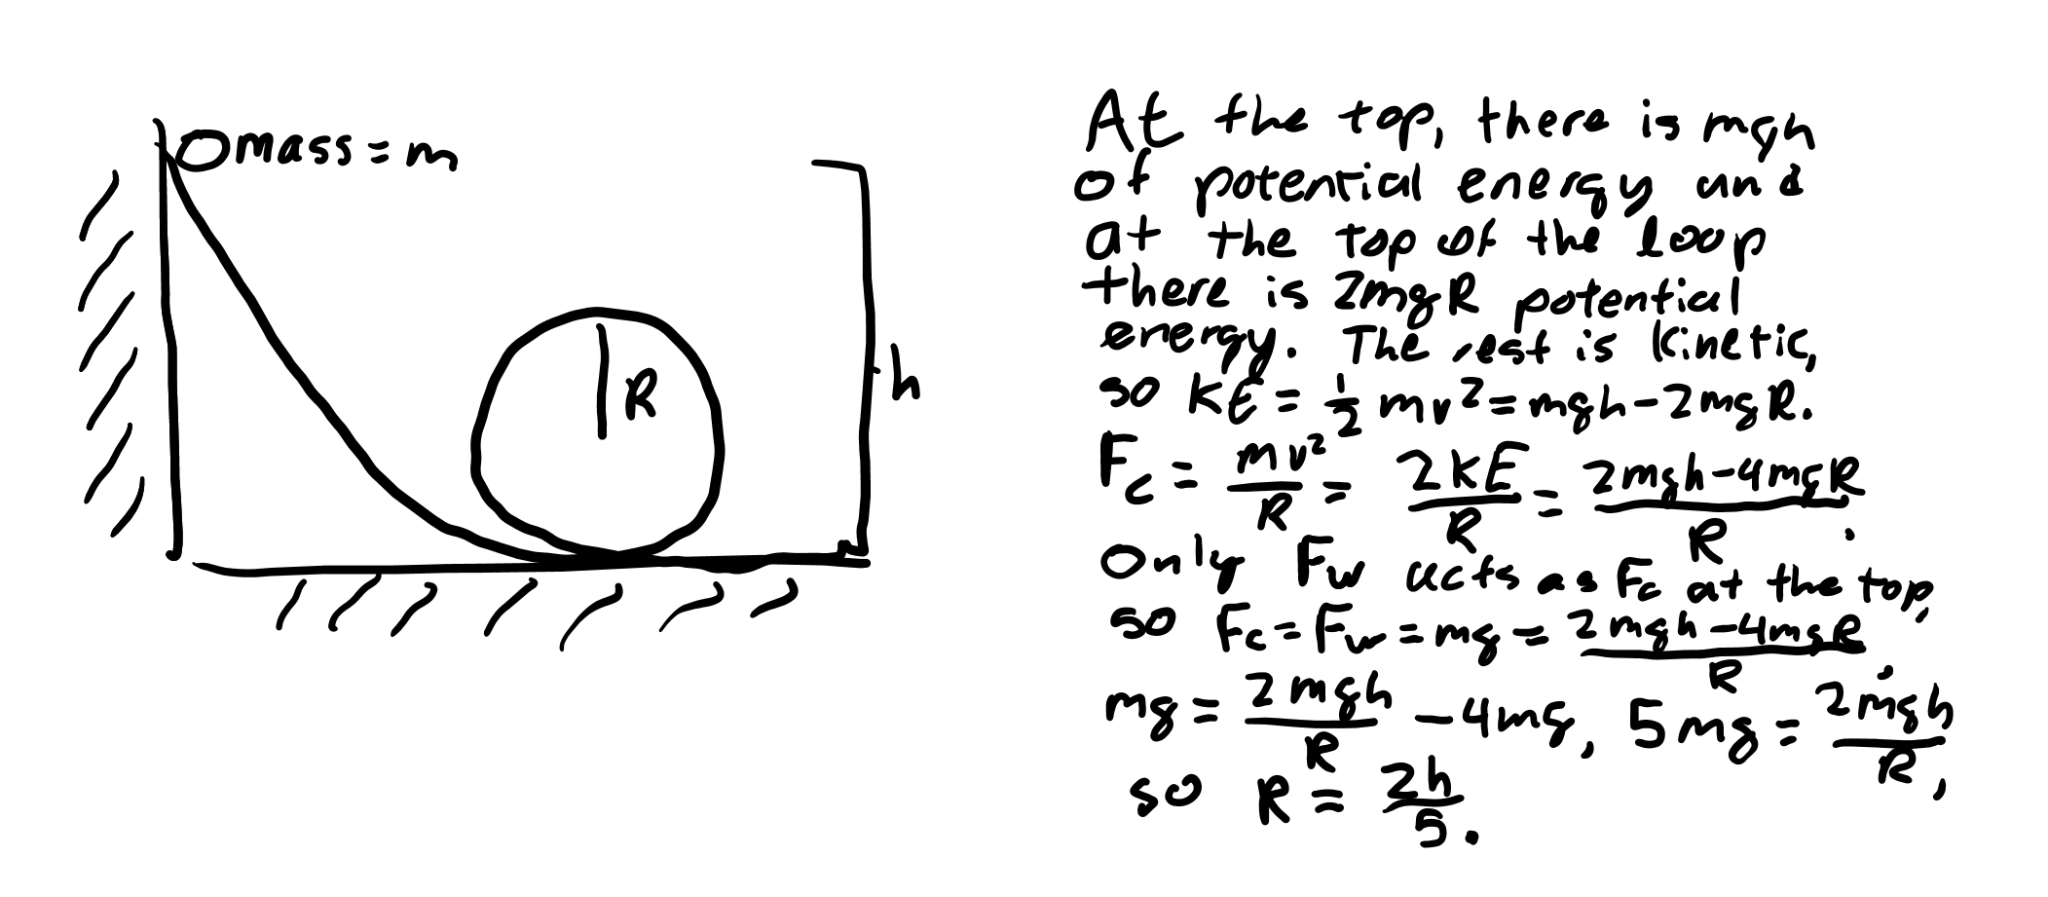 mass = m
R
h
At the top, there is mgh
of potential energy and
at the top of the loop
there is 2mgR potential
energy. The rest is kinetic,
so KE = 1/2 mv² = mgh - 2mgR.
Fc = mv²/R = 2KE/R = (2mgh - 4mgR)/R.
Only Fw acts as Fc at the top,
so Fc = Fw = mg = (2mgh - 4mgR)/R.
mg = 2mgh/R - 4mg, 5mg = 2mgh/R,
so R = 2h/5.